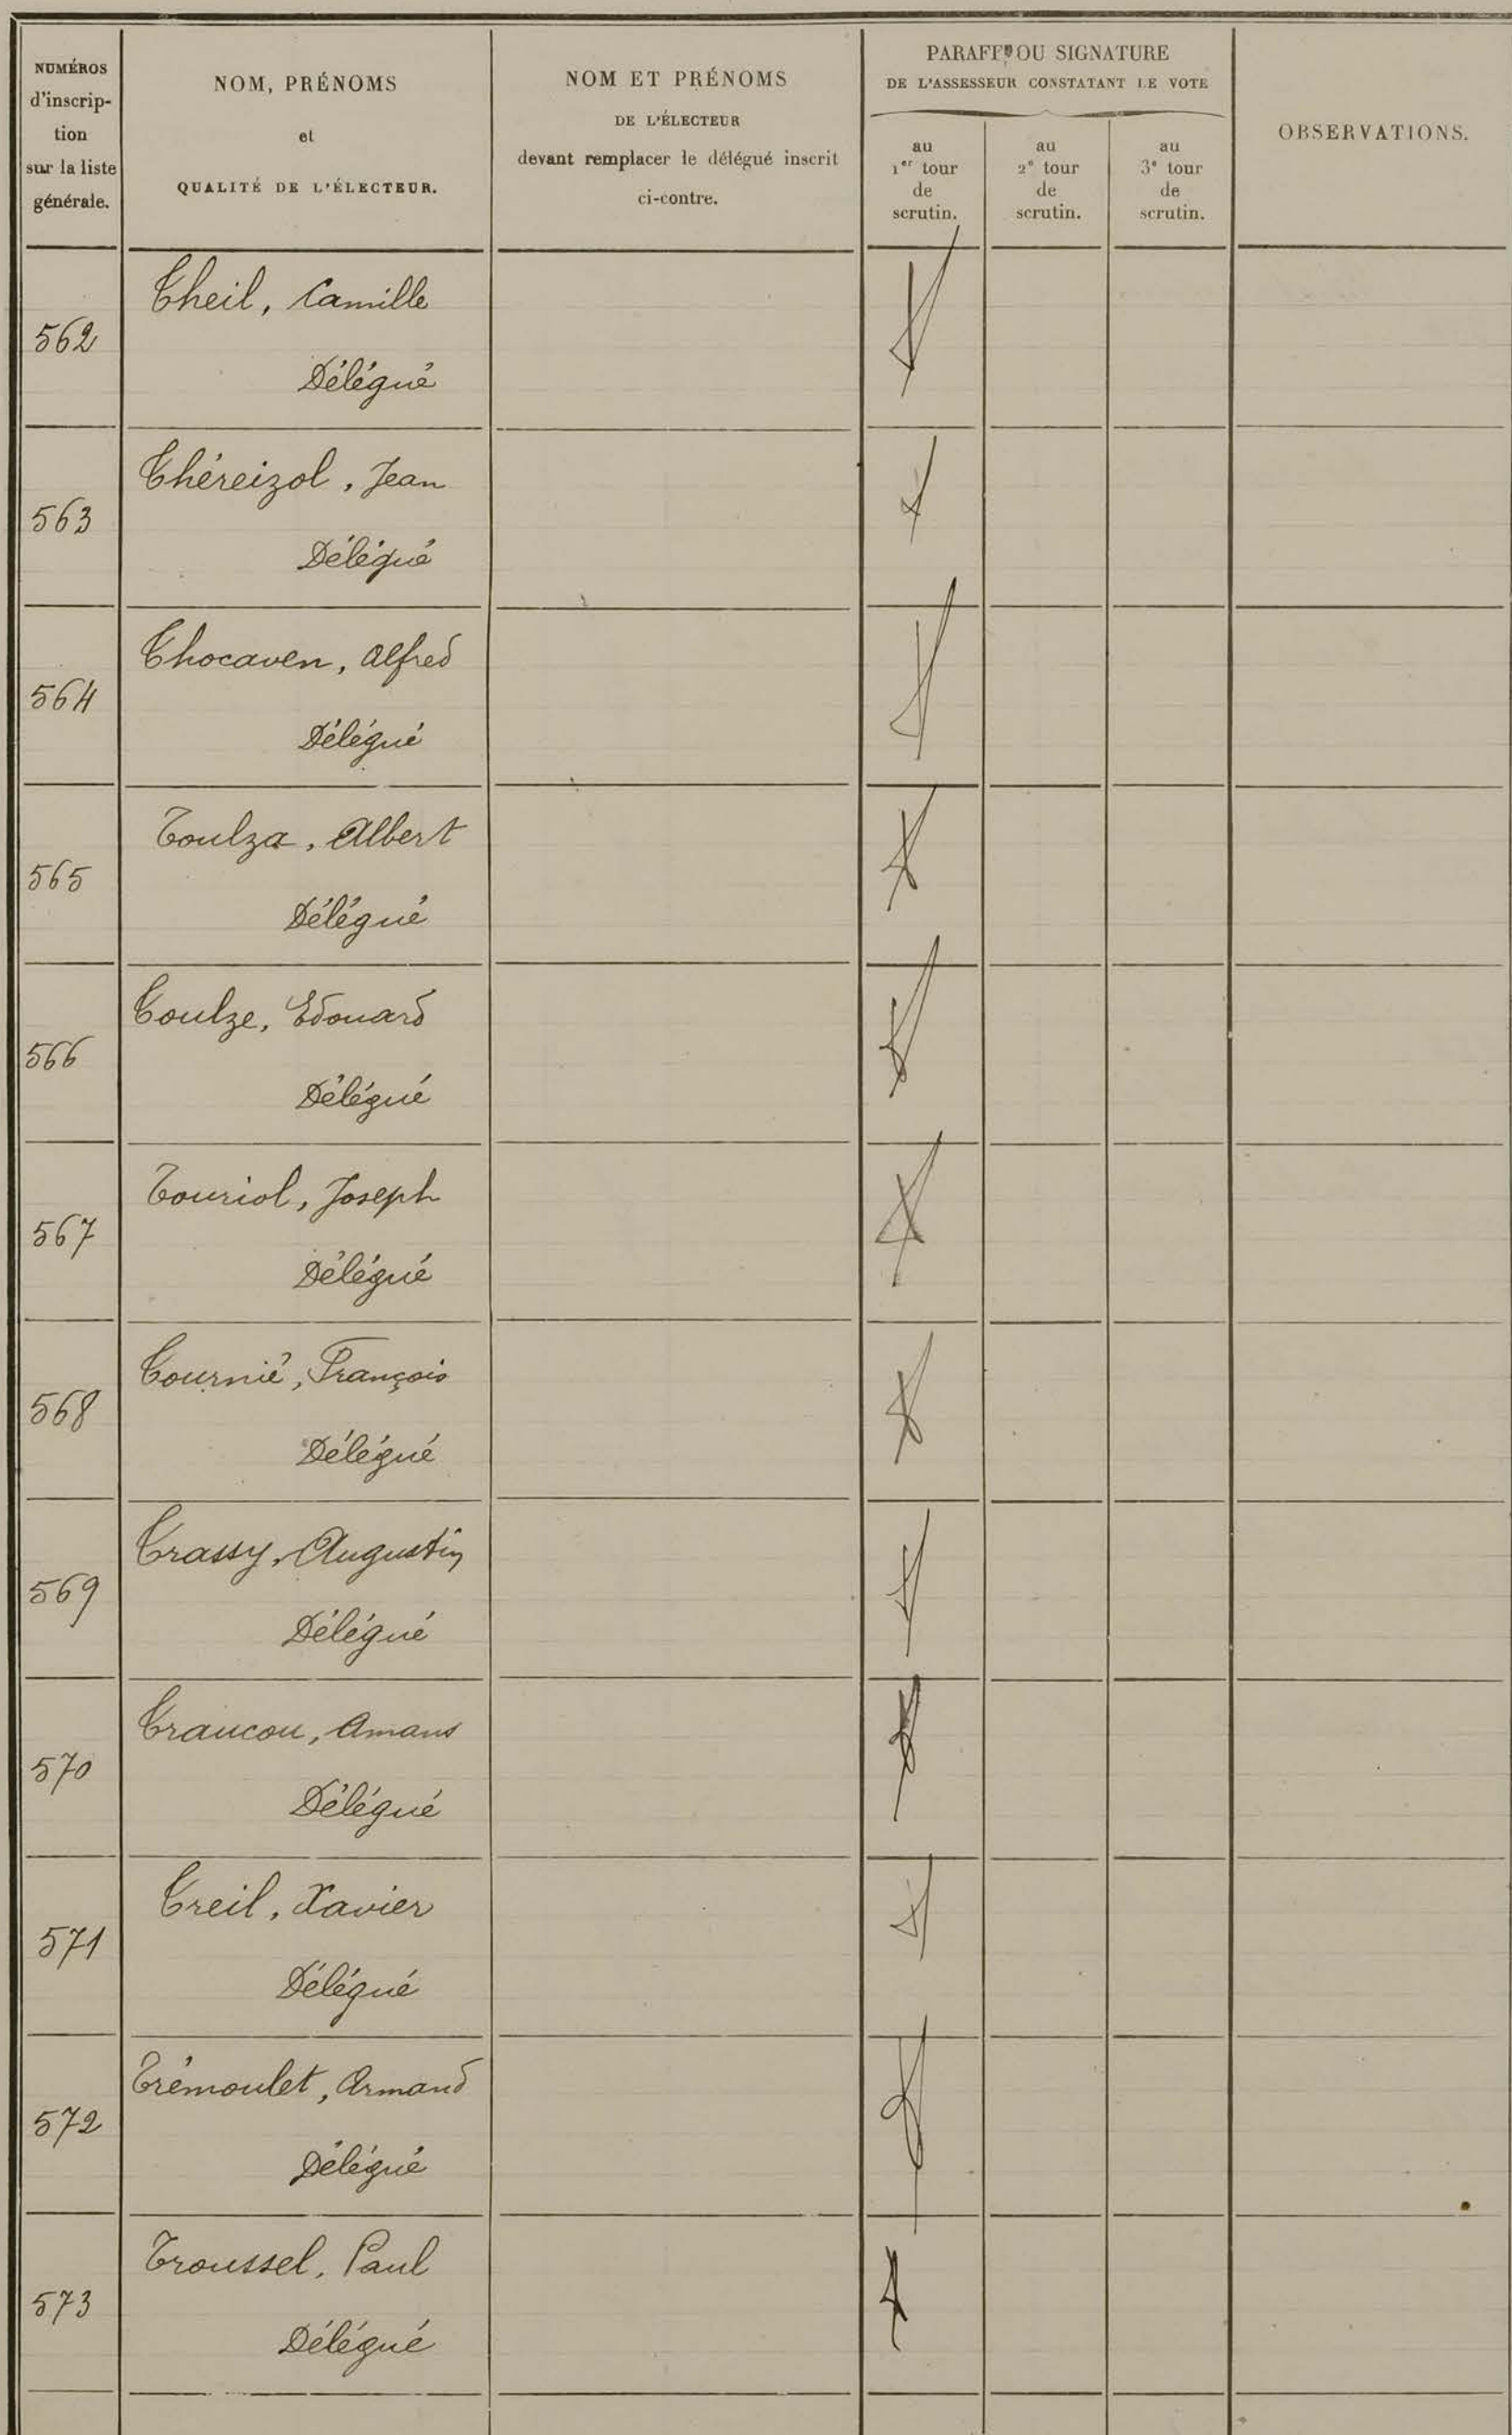 NUMÉROS
d'inscrip-
tion
sur la liste
générale.
NOM, PRÉNOMS
et
QUALITÉ DE L'ÉLECTEUR.
NOM ET PRÉNOMS
DE L'ÉLECTEUR
devant remplacer le délégué inscrit
ci-contre.
PARAFE OU SIGNATURE
DE L'ASSESSEUR CONSTATANT LE VOTE
au
1er tour
de
scrutin.
au
2e tour
de
scrutin.
au
3e tour
de
scrutin.
OBSERVATIONS.
562
Theil, Camille
Délégué
563
Théreizol, Jean
Délégué
564
Thocaven, Alfred
Délégué
565
Toulza, Albert
Délégué
566
Toulze, Edouard
Délégué
567
Touriol, Joseph
Délégué
568
Tournié, François
Délégué
569
Trassy, Augustin
Délégué
570
Traucou, Amans
Délégué
571
Treil, Xavier
Délégué
572
Trémoulet, Armand
Délégué
573
Troussel, Paul
Délégué